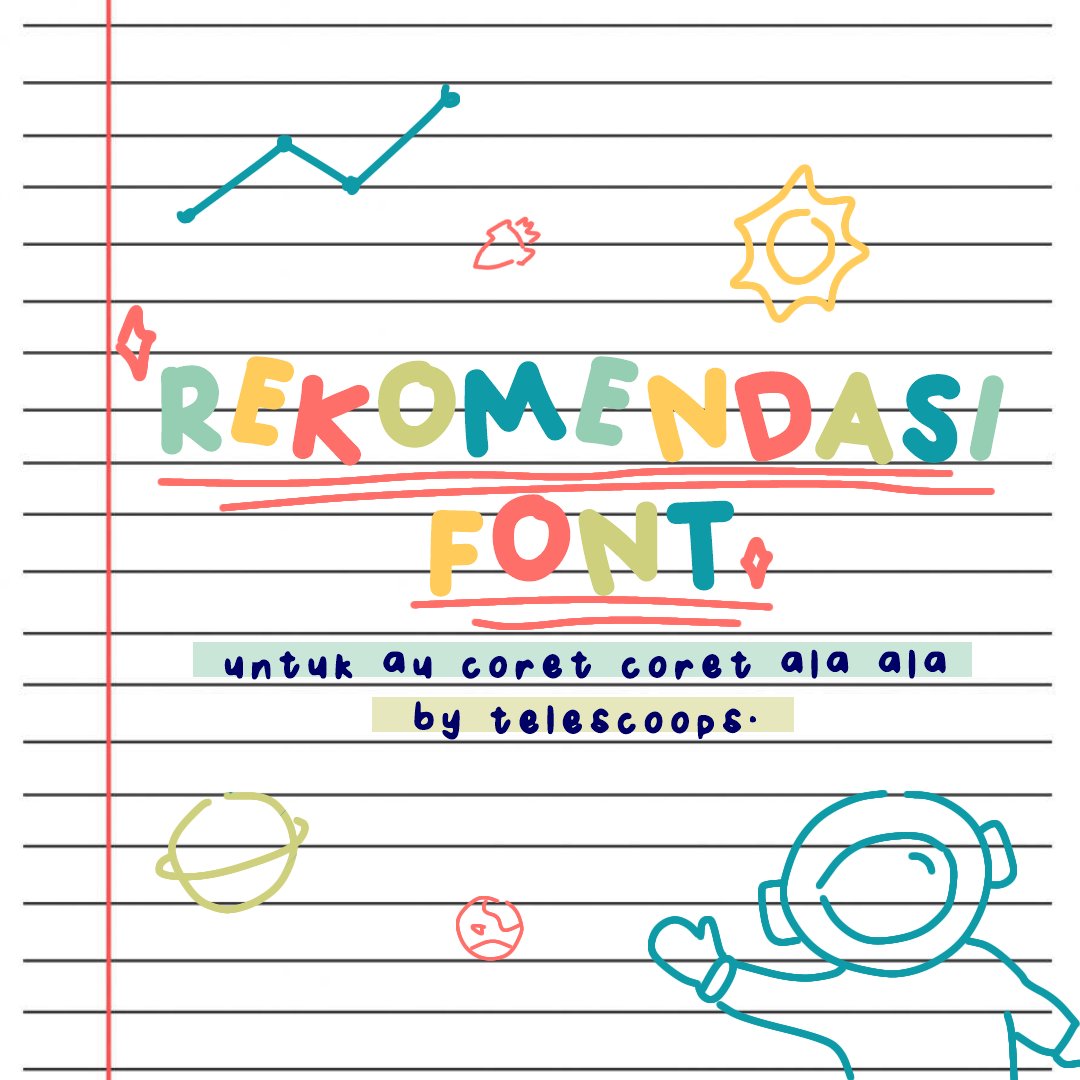 REKOMENDASI
FONT
untuk au coret coret ala ala
by telescoops.